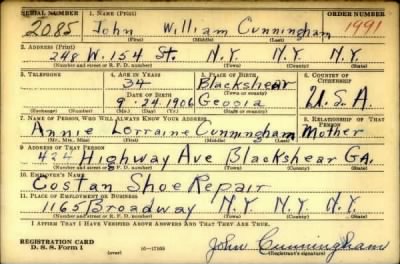 SERIAL NUMBER 1. NAME (Print) ORDER NUMBER
2085 John William Cunningham 1991
(First) (Middle) (Last)
2. ADDRESS (Print)
248 W. 154 St. N.Y. N.Y. N.Y.
(Number and street or R. F. D. number) (Town) (County) (State)
3. TELEPHONE 4. AGE IN YEARS 5. PLACE OF BIRTH 6. COUNTRY OF CITIZENSHIP
34 Blackshear
DATE OF BIRTH (Town or county)
9-24.1906 Geogia U.S.A.
(Exchange) (Number) (Mo.) (Day) (Yr.) (State or country)
7. NAME OF PERSON WHO WILL ALWAYS KNOW YOUR ADDRESS 8. RELATIONSHIP OF THAT PERSON
Annie Lorraine Cunningham Mother
(Mr., Mrs., Miss) (First) (Middle) (Last)
9. ADDRESS OF THAT PERSON
424 Highway Ave Blackshear GA.
(Number and street or R. F. D. number) (Town) (County) (State)
10. EMPLOYER'S NAME
Costan Shoe Repair
11. PLACE OF EMPLOYMENT OR BUSINESS
1165 Broadway N.Y. N.Y. N.Y.
(Number and street or R. F. D. number) (Town) (County) (State)
I AFFIRM THAT I HAVE VERIFIED ABOVE ANSWERS AND THAT THEY ARE TRUE.
REGISTRATION CARD
D. S. S. Form 1 (over) John Cunningham
(Registrant's signature)